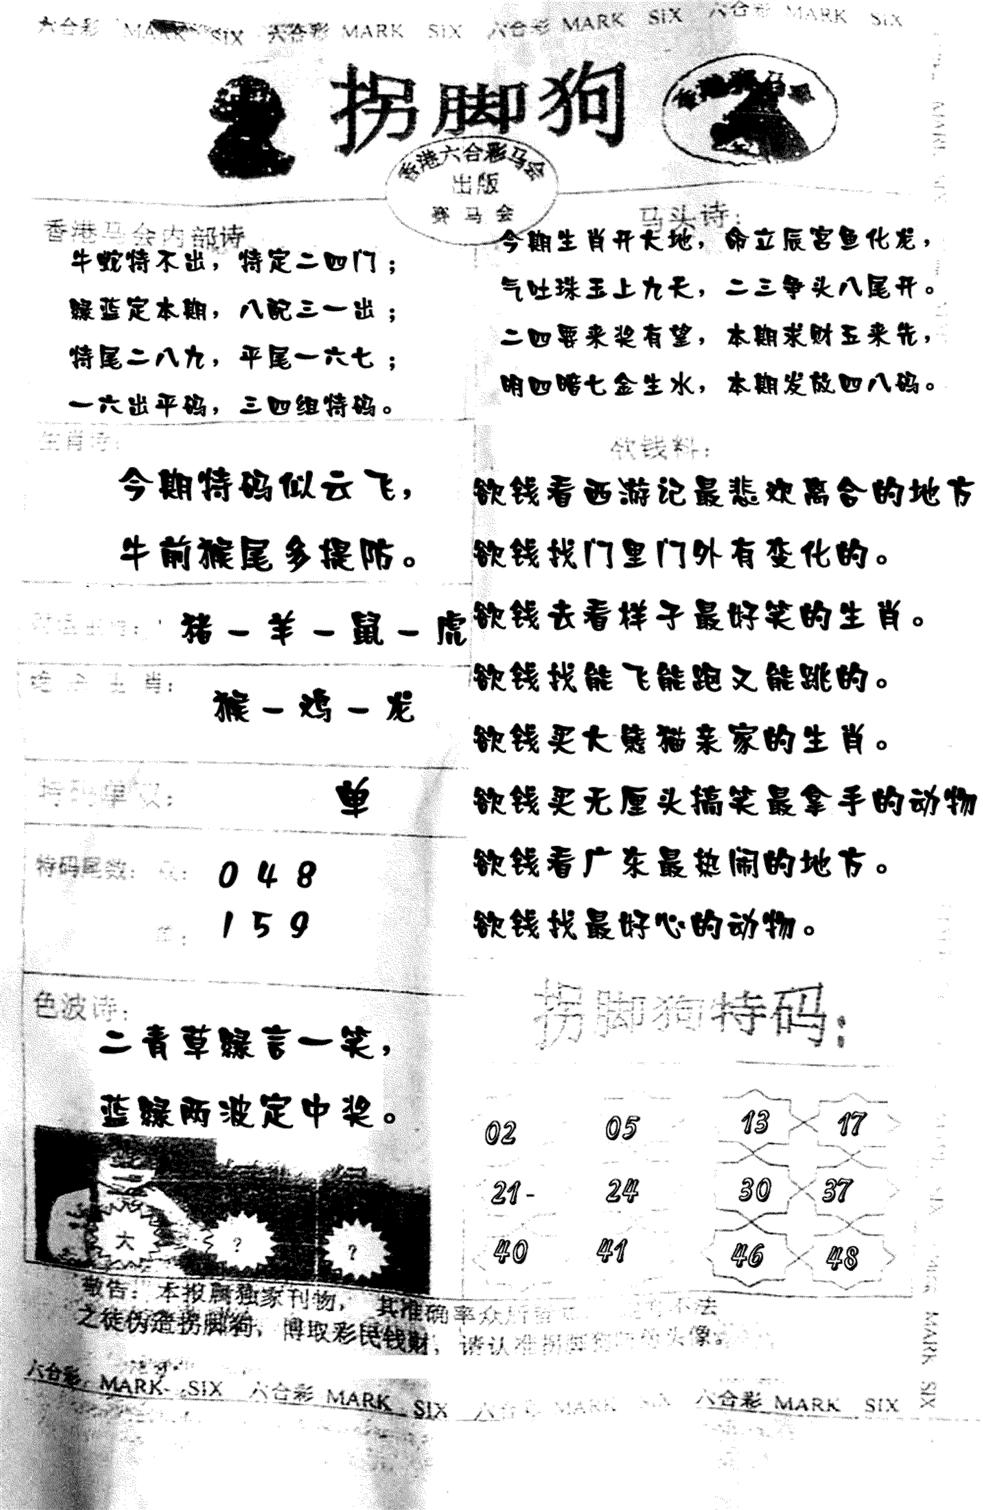 六合彩 MARK SIX 六合彩 MARK SIX 六合彩 MARK SIX 六合彩 MARK SIX
拐脚狗
香港赛马会
香港六合彩马会
出版
赛马会
香港马会内部诗
牛蛇特不出，特定二四门；
绿蓝定本期，八配三一出；
特尾二八九，平尾一六七；
一六出平码，三四组特码。
马头诗：
今期生肖开大地，命立辰宫鱼化龙，
气吐珠玉上九天，二三争头八尾开。
二四要来奖有望，本期求财五来先，
明四暗七金生水，本期发放四八码。
生肖诗：
今期特码似云飞，
牛前猴尾多提防。
猪－羊－鼠－虎
生肖：
猴－鸡－龙
特码单双：
单
特码尾数：双：
0 4 8
单：
1 5 9
色波诗：
二青草绿言一笑，
蓝绿两波定中奖。
大 ？ ？
欲钱料：
欲钱看西游记最悲欢离合的地方
欲钱找门里门外有变化的。
欲钱去看样子最好笑的生肖。
欲钱找能飞能跑又能跳的。
欲钱买大熊猫亲家的生肖。
欲钱买无厘头搞笑最拿手的动物
欲钱看广东最热闹的地方。
欲钱找最好心的动物。
拐脚狗特码：
02 05 13 17
21- 24 30 37
40 41 46 48
敬告：本报属独家刊物，其准确率众所 不法
之徒伪造拐脚狗，博取彩民钱财，请认准拐脚狗 头像
六合彩 MARK SIX 六合彩 MARK SIX 六合彩 MARK SIX 六合彩 MARK SIX
MARK SIX